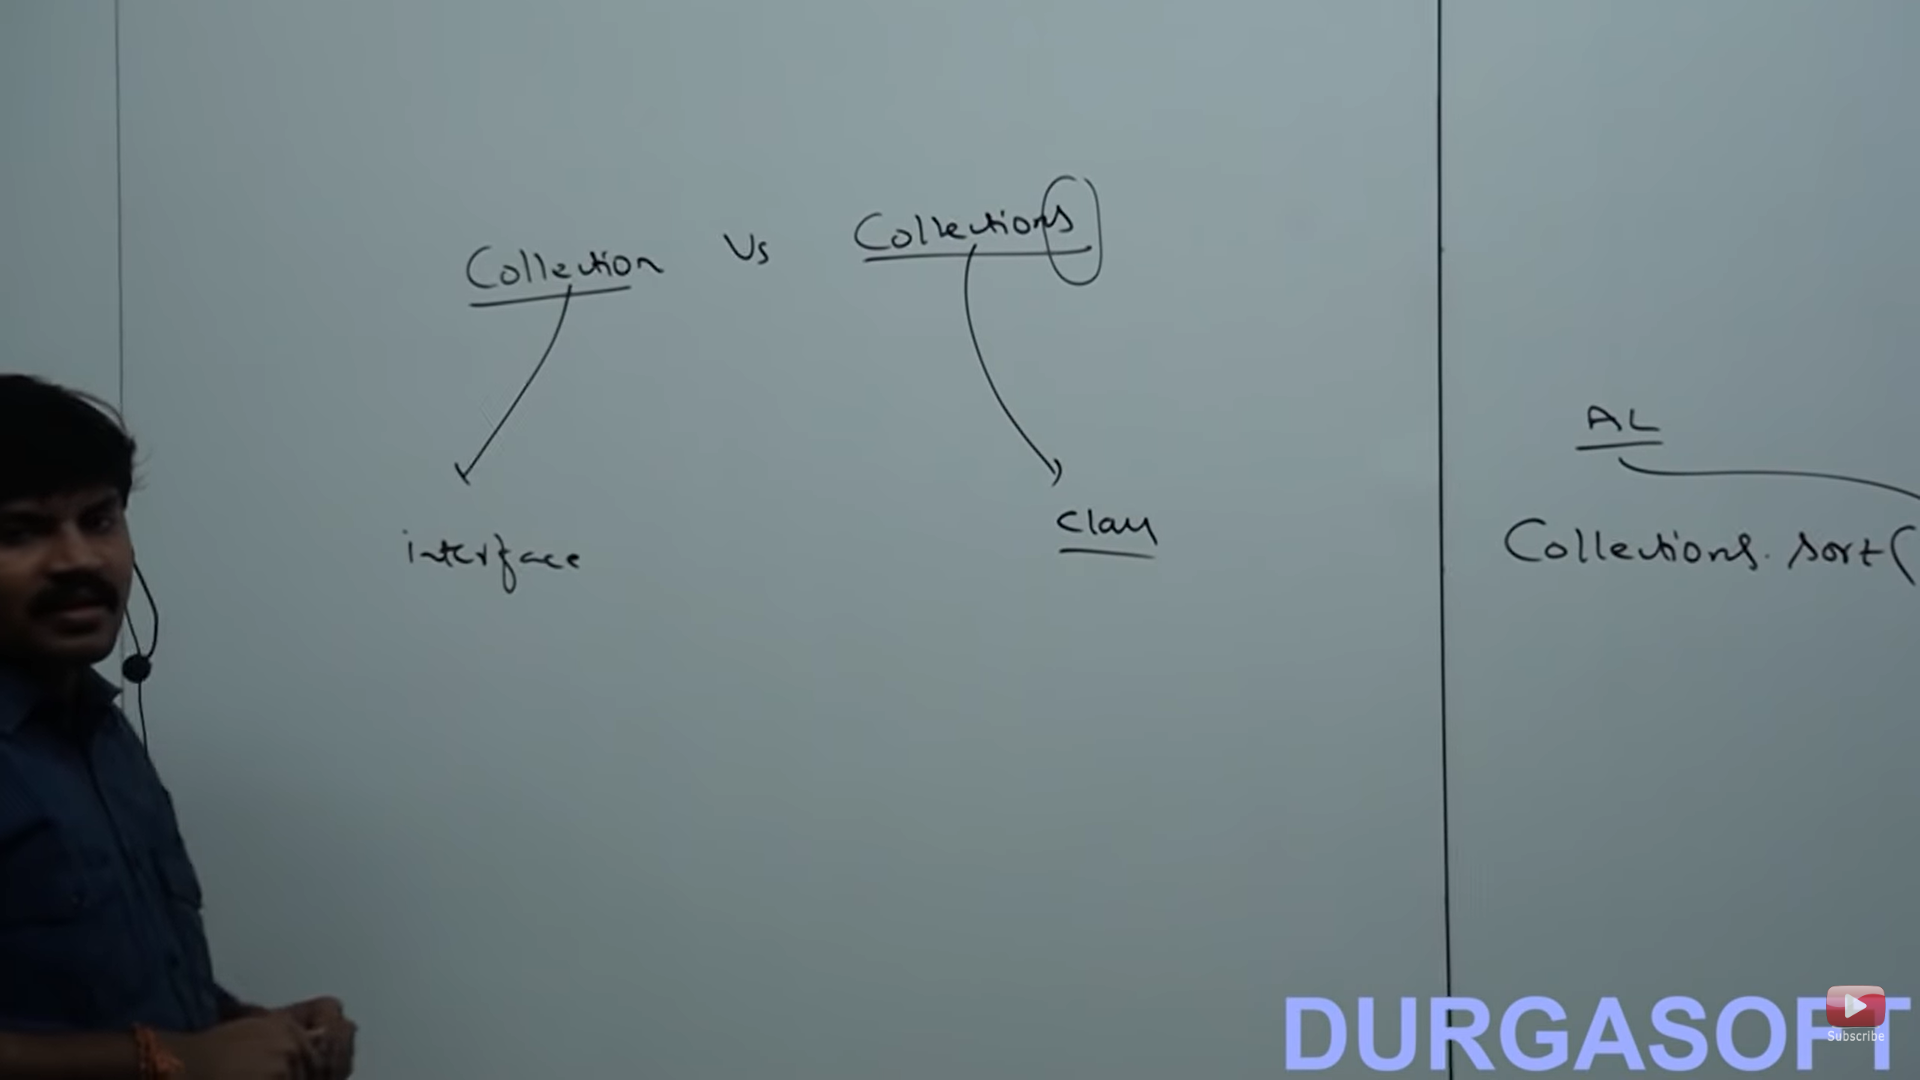 Collection Vs Collections
interface
class
AL
Collections.sort(
DURGASOFT
Subscribe